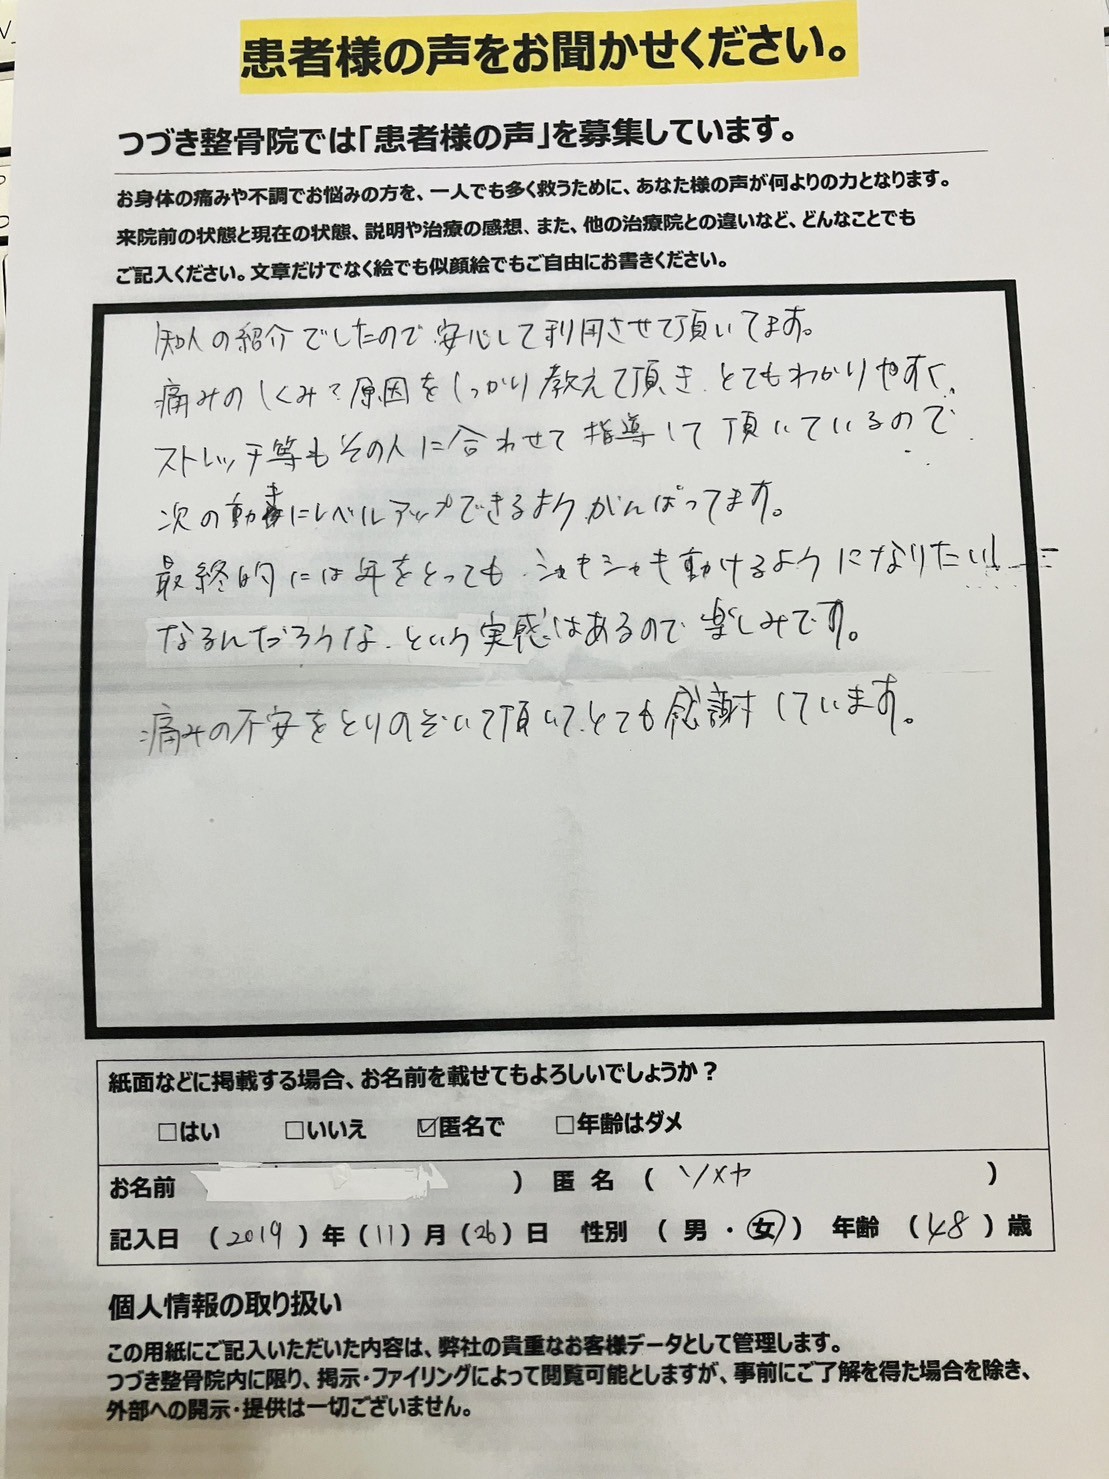 患者様の声をお聞かせください。
つづき整骨院では「患者様の声」を募集しています。
お身体の痛みや不調でお悩みの方を、一人でも多く救うために、あなた様の声が何よりの力となります。
来院前の状態と現在の状態、説明や治療の感想、また、他の治療院との違いなど、どんなことでも
ご記入ください。文章だけでなく絵でも似顔絵でもご自由にお書きください。
知人の紹介でしたので安心して利用させて頂いてます。
痛みのしくみ、原因をしっかり教えて頂き、とてもわかりやすく、
ストレッチ等もその人に合わせて指導して頂いているので
次の動きにレベルアップできるようがんばってます。
最終的には年をとっても、シャキシャキ動けるようになりたい!
なるんだろうな、という実感はあるので楽しみです。
痛みの不安をとりのぞいて頂いて、とても感謝しています。
紙面などに掲載する場合、お名前を載せてもよろしいでしょうか？
□はい □いいえ ☑匿名で □年齢はダメ
お名前 ） 匿名 （ソメヤ ）
記入日 （2019）年（11）月（26）日 性別 （男・女） 年齢 （48）歳
個人情報の取り扱い
この用紙にご記入いただいた内容は、弊社の貴重なお客様データとして管理します。
つづき整骨院内に限り、掲示・ファイリングによって閲覧可能としますが、事前にご了解を得た場合を除き、
外部への開示・提供は一切ございません。